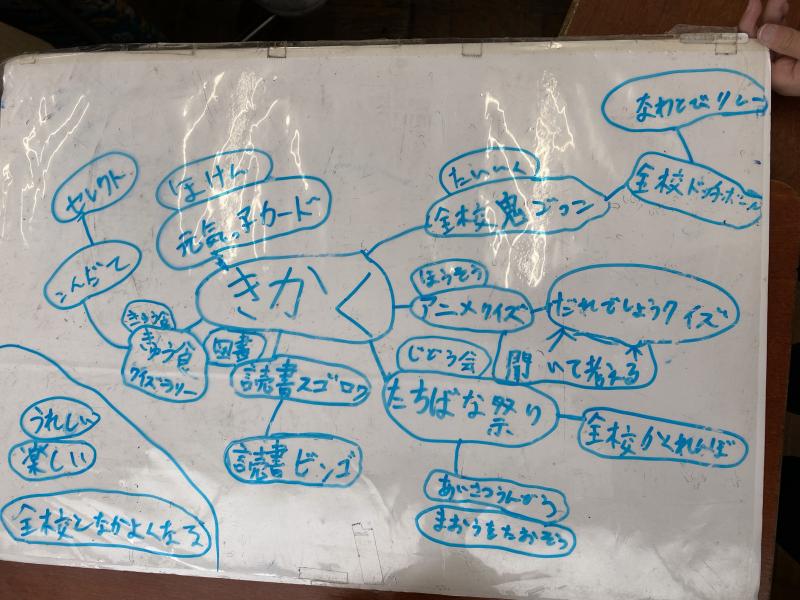 なわとびリレー
全校ドッチボール
たいいく
全校鬼ごっこ
セレクト
ほけん
元気っ子カード
こんだて
きかく
ほうそう
アニメクイズ
だれでしょうクイズ
聞いて考える
きゅう食
きゅう食
クイズラリー
図書
読書スゴロク
読書ビンゴ
じどう会
たちばな祭り
全校かくれんぼ
あいさつうんどう
まおうをたおそう
うれしい
楽しい
全校となかよくなろ